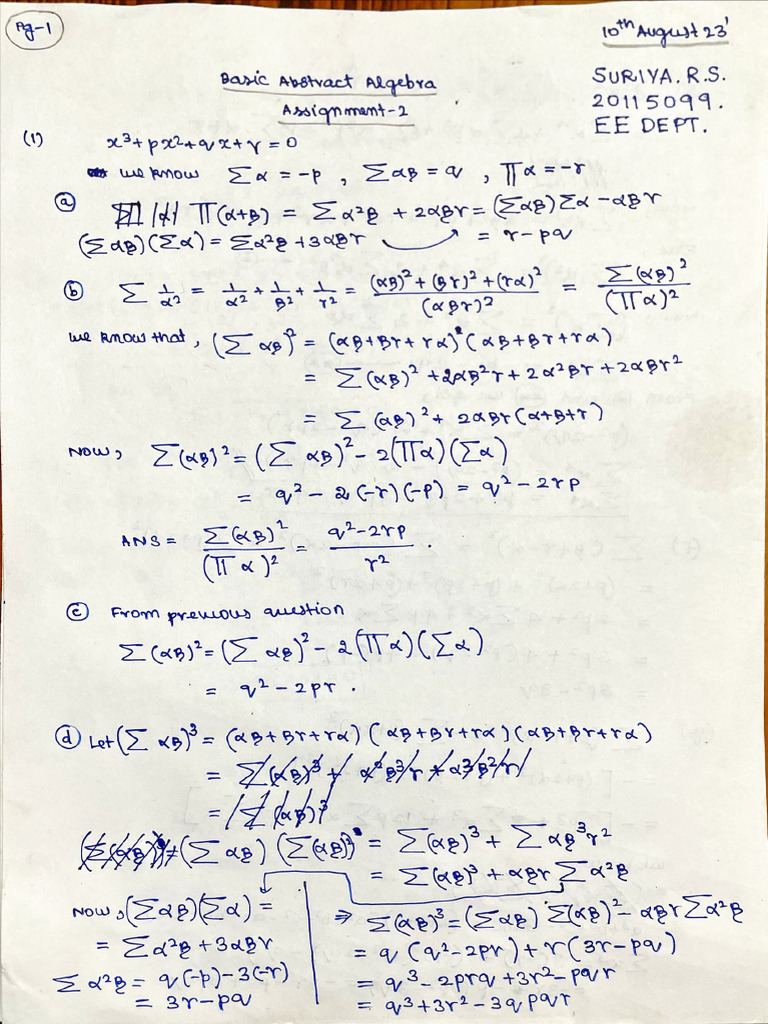 Pg-1
10th August 23'
Basic Abstract Algebra
Assignment-2
SURIYA.R.S.
20115099.
EE DEPT.
(1) x³+px²+qx+r=0
we know Σα = -p, Σαβ = q, Πα = -r
ⓐ Π(α+β) = Σα²β + 2αβr = (Σαβ)Σα - αβr
(Σαβ)(Σα) = Σα²β + 3αβr = r - pq
ⓑ Σ 1/α² = 1/α² + 1/β² + 1/r² = ((αβ)² + (βr)² + (rα)²)/(αβr)² = Σ(αβ)²/(Πα)²
we know that, (Σαβ)² = (αβ+βr+rα)(αβ+βr+rα)
= Σ(αβ)² + 2αβ²r + 2α²βr + 2αβr²
= Σ(αβ)² + 2αβr(α+β+r)
NOW, Σ(αβ)² = (Σαβ)² - 2(Πα)(Σα)
= q² - 2(-r)(-p) = q² - 2rp
ANS = Σ(αβ)²/(Πα)² = (q²-2rp)/r² .
ⓒ From previous question
Σ(αβ)² = (Σαβ)² - 2(Πα)(Σα)
= q² - 2pr .
ⓓ Let (Σαβ)³ = (αβ+βr+rα)(αβ+βr+rα)(αβ+βr+rα)
= Σ(αβ)³ + α²β³r + α³β²r
= Σ(αβ)³
(Σαβ)(Σ(αβ)²) = Σ(αβ)³ + Σαβ³r²
= Σ(αβ)³ + αβr Σα²β
NOW, (Σαβ)(Σα) =
= Σα²β + 3αβr
Σα²β = q(-p) - 3(-r)
= 3r - pq
⇒ Σ(αβ)³ = (Σαβ) Σ(αβ)² - αβr Σα²β
= q(q²-2pr) + r(3r-pq)
= q³ - 2prq + 3r² - pqr
= q³ + 3r² - 3q pqr